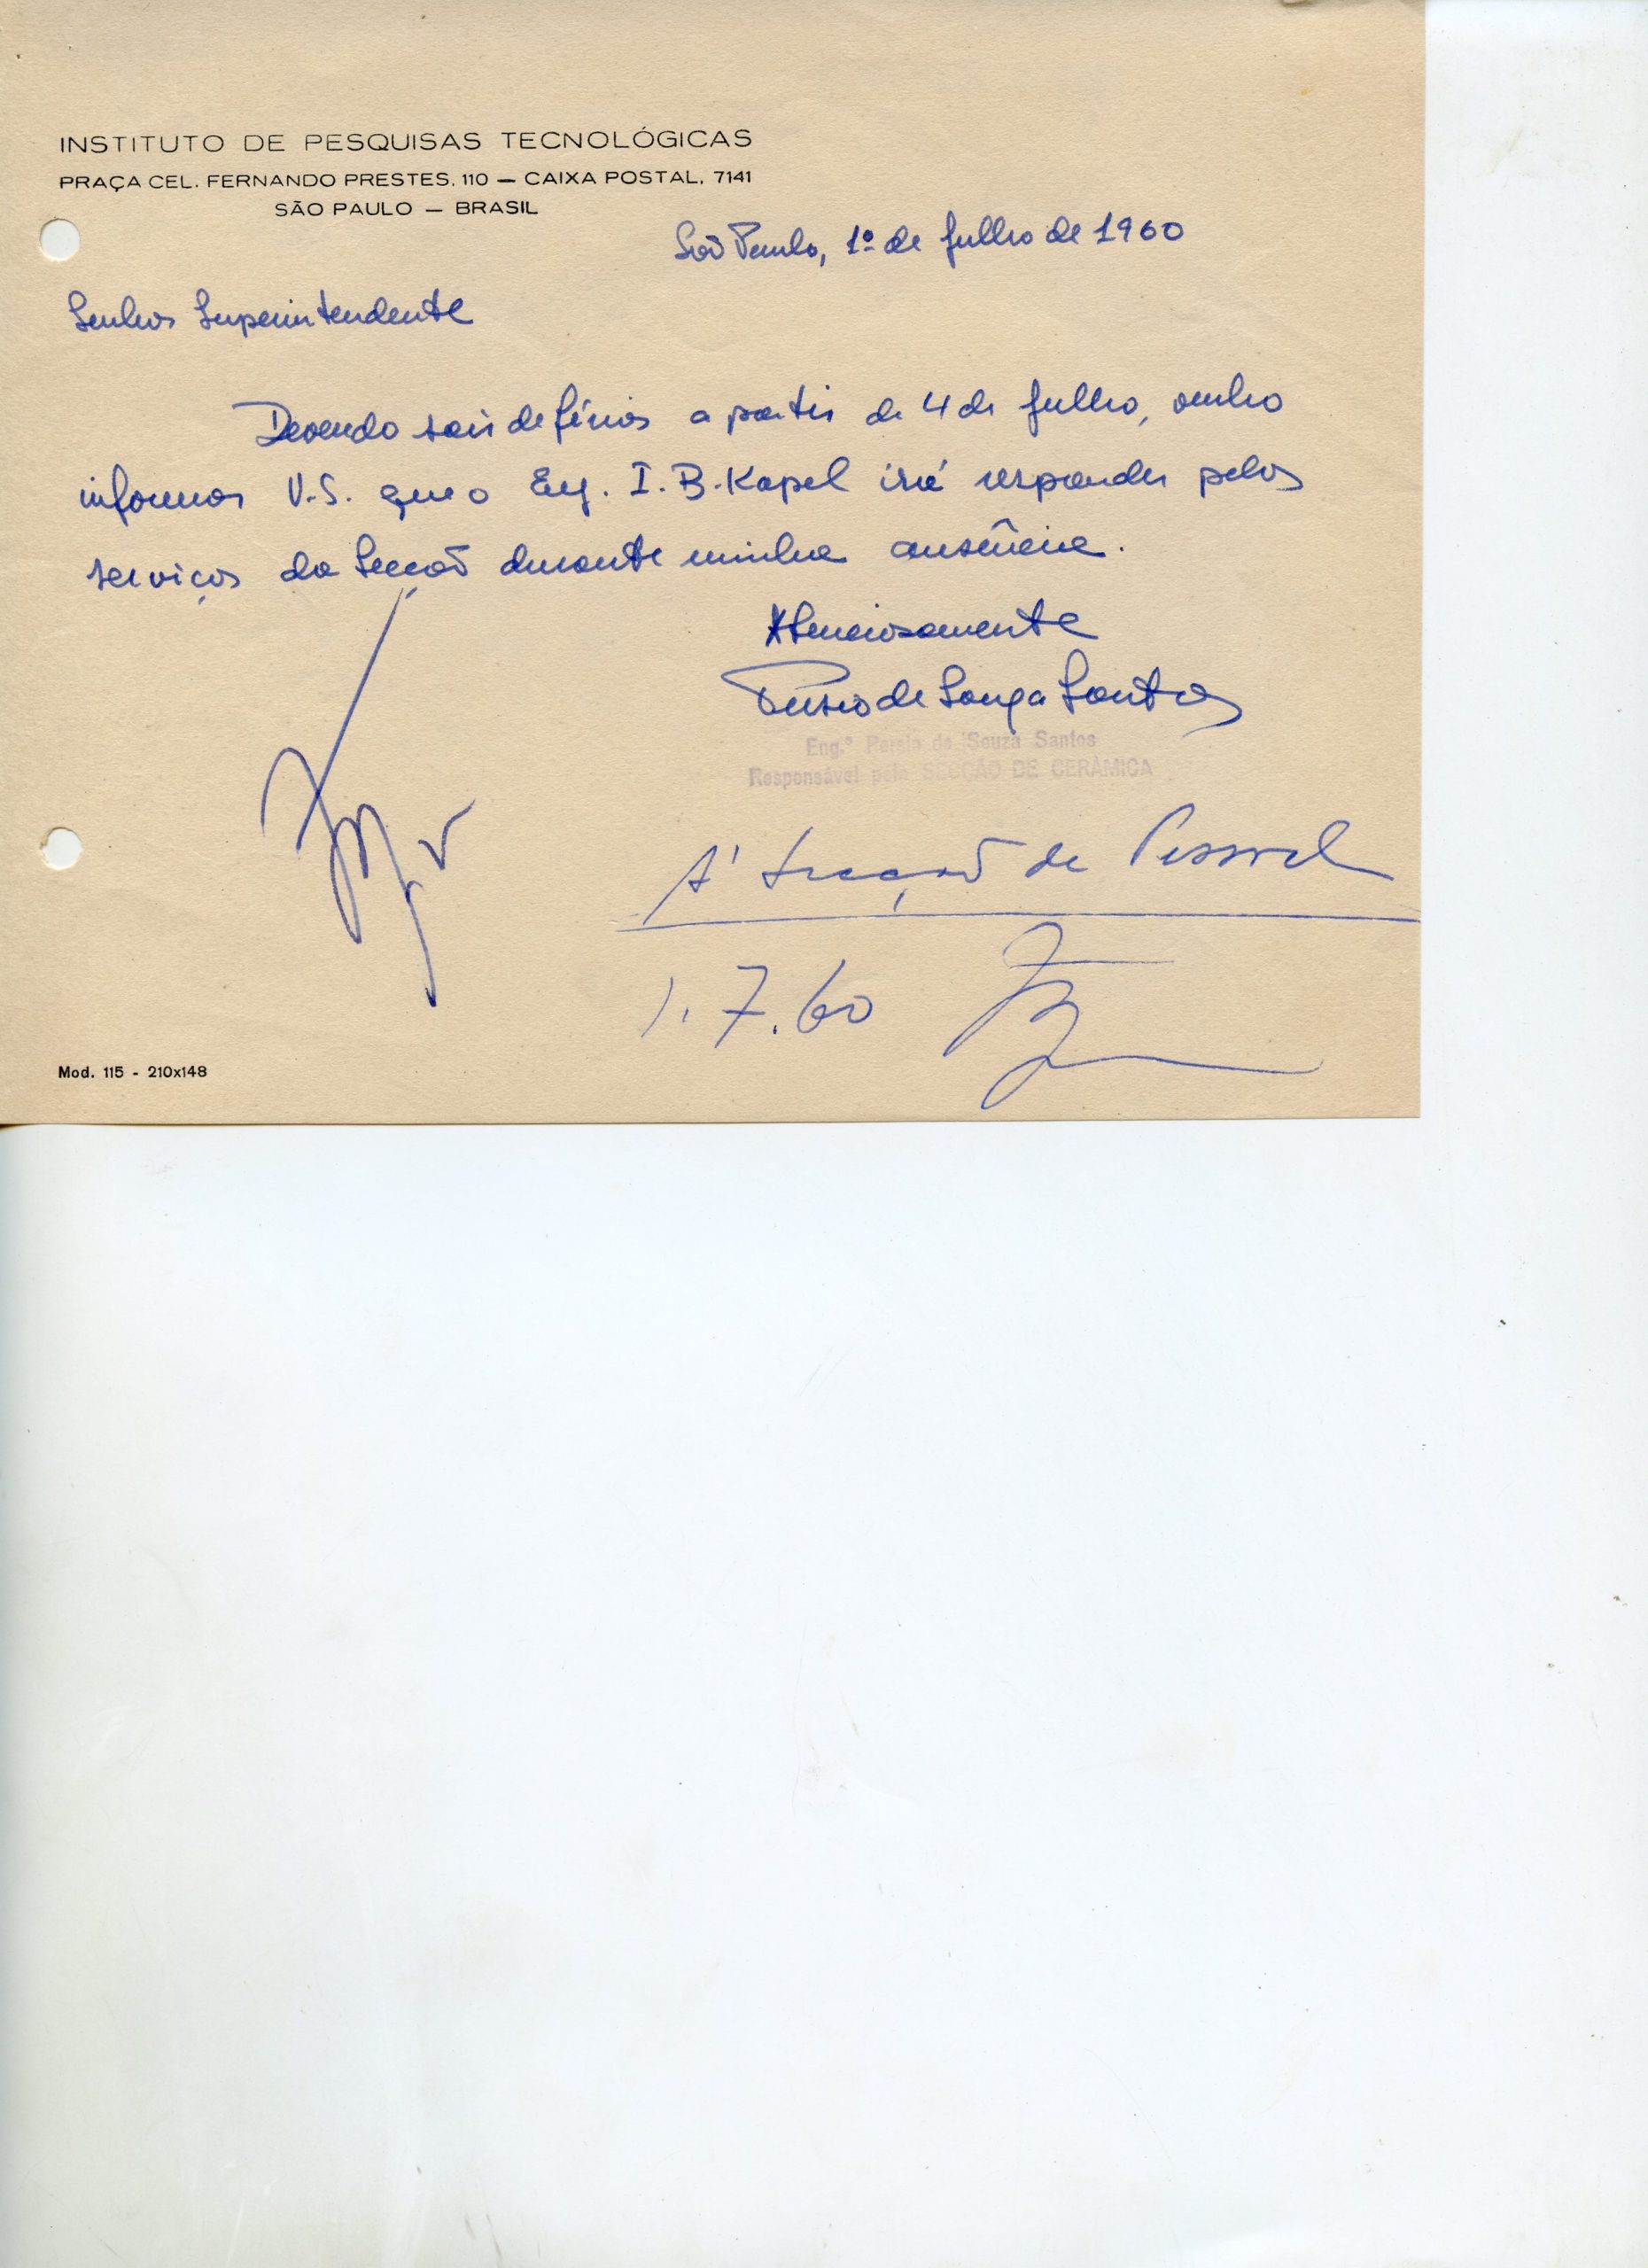 INSTITUTO DE PESQUISAS TECNOLÓGICAS
PRAÇA CEL. FERNANDO PRESTES, 110 — CAIXA POSTAL, 7141
SÃO PAULO — BRASIL
São Paulo, 1º de Julho de 1960
Senhor Superintendente
Devendo sair de férias a partir de 4 de Julho, venho
informar V.S. que o Eng. I. B. Kapel irá responder pelos
serviços da Secção durante minha ausência.
Atenciosamente
Pérsio de Souza Santos
Eng.º Persio de Souza Santos
Responsável pela SECÇÃO DE CERÂMICA
À Secção de Pessoal
1.7.60
Mod. 115 - 210x148